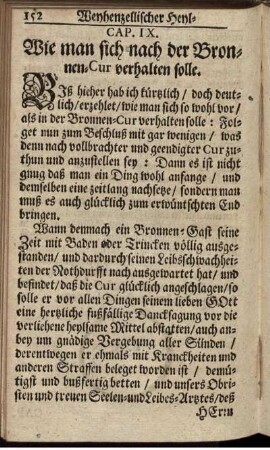 152 Weyhenzellischer Heyl-
CAP. IX.
Wie man sich nach der Bron-
nen-Cur verhalten solle.
BIß hieher hab ich kürtzlich / doch deut-
lich / erzehlet / wie man sich so wohl vor /
als in der Bronnen-Cur verhalten solle: Fol-
get nun zum Beschluß mit gar wenigen / was
denn nach vollbrachter und geendigter Cur zu-
thun und anzustellen sey: Dann es ist nicht
gnug daß man ein Ding wohl anfange / und
demselben eine zeitlang nachsetze / sondern man
muß es auch glücklich zum erwüntschten End
bringen.
Wann demnach ein Bronnen-Gast seine
Zeit mit Baden oder Trincken völlig ausge-
standen / und dardurch seinen Leibsschwachhei-
ten der Nothdurfft nach ausgewartet hat / und
befindet / daß die Cur glücklich angeschlagen / so
solle er vor allen Dingen seinem lieben GOtt
eine hertzliche fußfällige Dancksagung vor die
verliehene heylsame Mittel abstatten / auch an-
bey um gnädige Vergebung aller Sünden /
derentwegen er ehmals mit Kranckheiten und
anderen Straffen beleget worden ist / demü-
tigst und bußfertig betten / und unsers Obri-
sten und treuen Seelen-und Leibes-Artztes / deß
HErrn